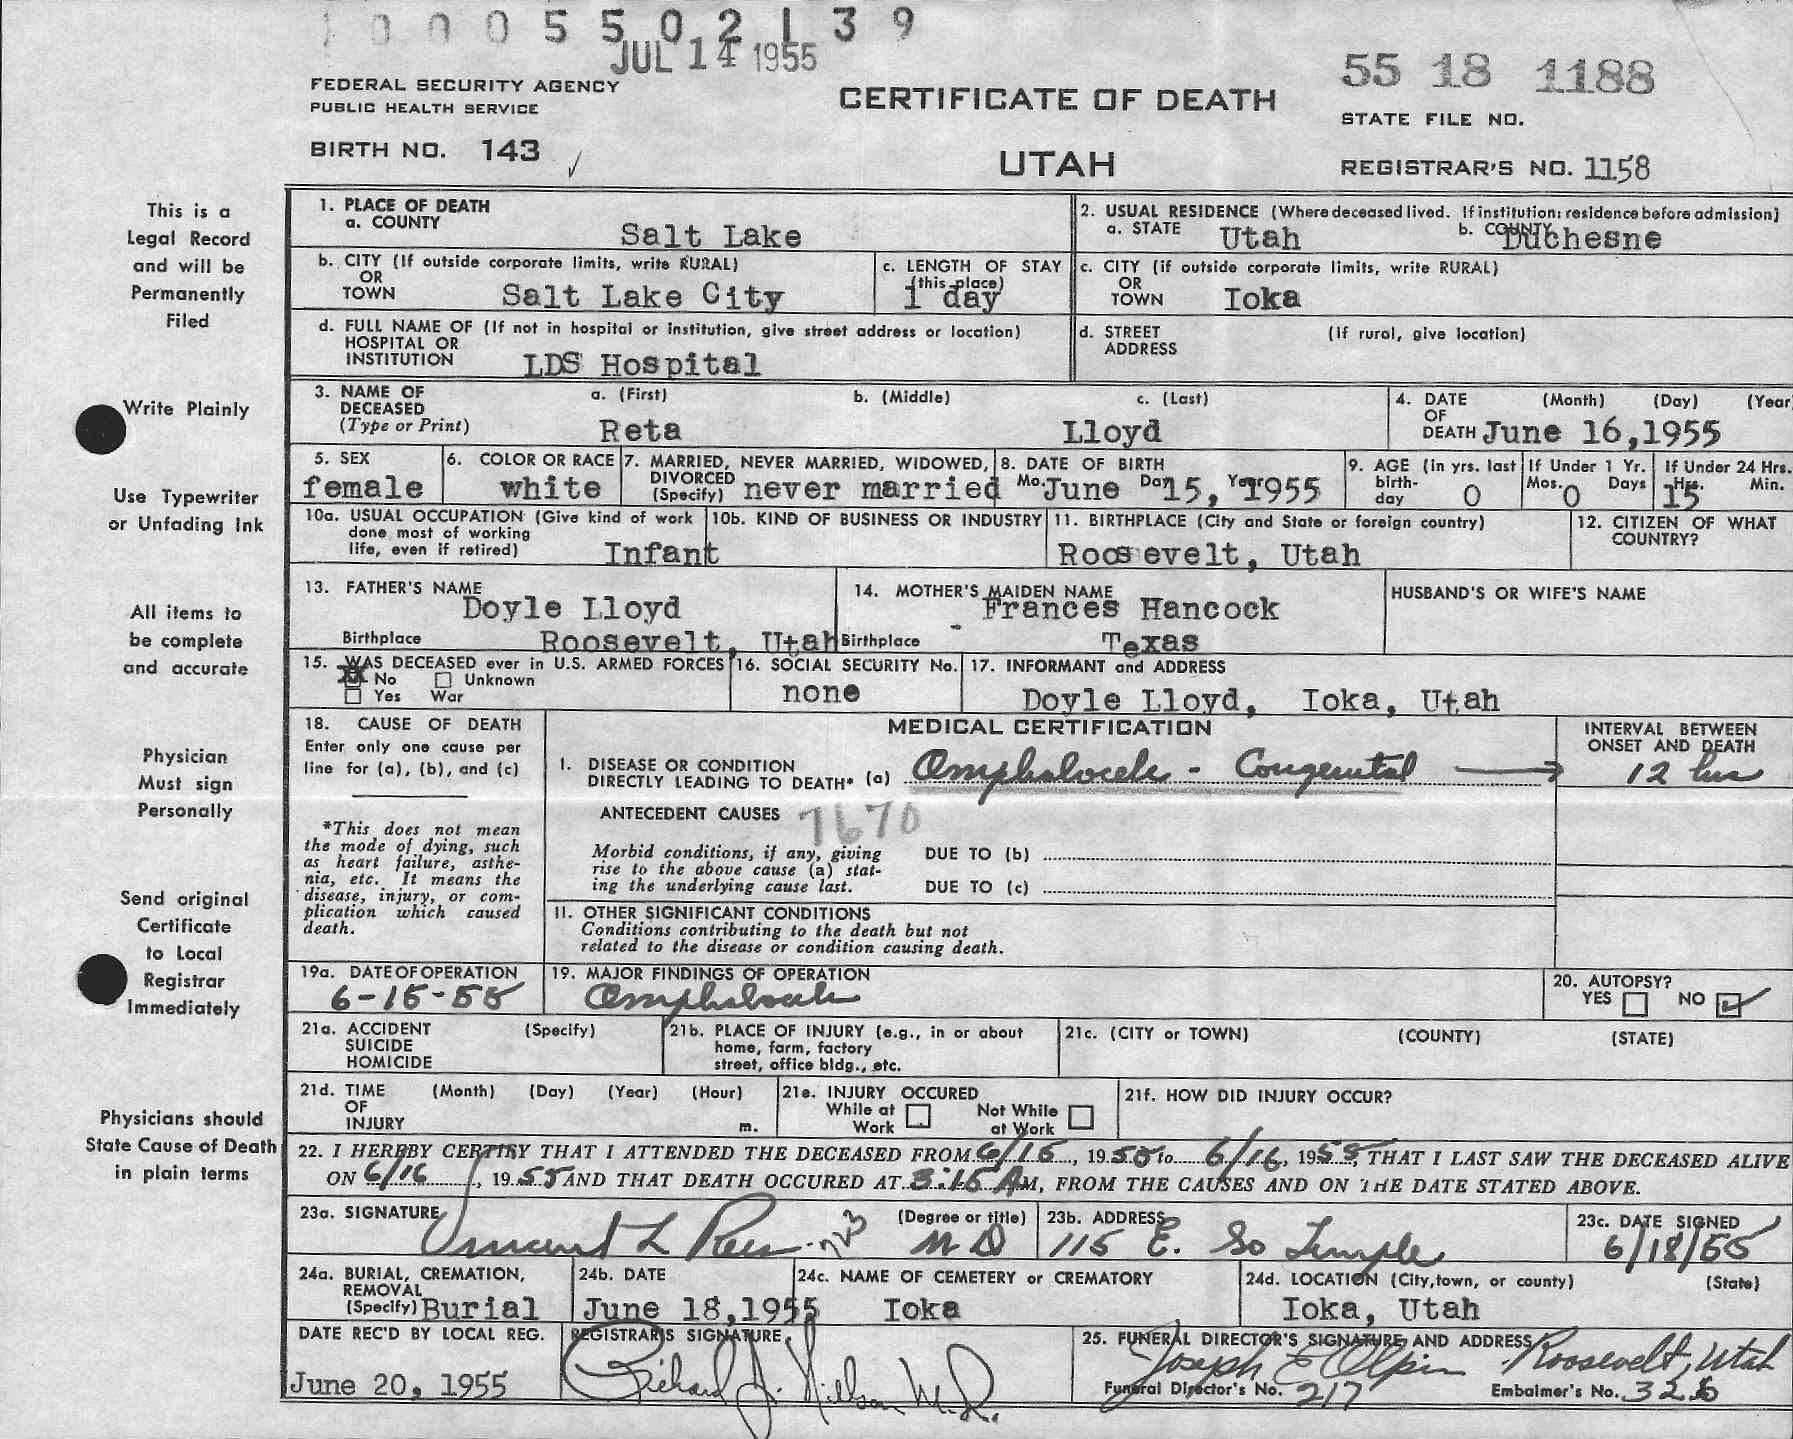 1 0 0 0 5 5 0 2 1 3 9
JUL 14 1955
55 18 1188
FEDERAL SECURITY AGENCY
PUBLIC HEALTH SERVICE
CERTIFICATE OF DEATH
STATE FILE NO.
BIRTH NO. 143 ✓
UTAH
REGISTRAR'S NO. 1158
This is a
Legal Record
and will be
Permanently
Filed
Write Plainly
Use Typewriter
or Unfading Ink
All items to
be complete
and accurate
Physician
Must sign
Personally
Send original
Certificate
to Local
Registrar
Immediately
Physicians should
State Cause of Death
in plain terms
1. PLACE OF DEATH
a. COUNTY
Salt Lake
2. USUAL RESIDENCE (Where deceased lived. If institution: residence before admission)
a. STATE Utah b. COUNTY Duchesne
b. CITY (If outside corporate limits, write RURAL)
OR
TOWN Salt Lake City
c. LENGTH OF STAY
(this place)
1 day
c. CITY (if outside corporate limits, write RURAL)
OR
TOWN Ioka
d. FULL NAME OF (If not in hospital or institution, give street address or location)
HOSPITAL OR
INSTITUTION LDS Hospital
d. STREET (If rural, give location)
ADDRESS
3. NAME OF a. (First) b. (Middle) c. (Last)
DECEASED
(Type or Print) Reta Lloyd
4. DATE (Month) (Day) (Year
OF
DEATH June 16,1955
5. SEX
female
6. COLOR OR RACE
white
7. MARRIED, NEVER MARRIED, WIDOWED,
DIVORCED
(Specify) never married
8. DATE OF BIRTH
Mo. June Day 15, Year 1955
9. AGE (In yrs. last
birth-
day 0
If Under 1 Yr.
Mos. 0 Days
If Under 24 Hrs.
Hrs. 15 Min.
10a. USUAL OCCUPATION (Give kind of work
done most of working
life, even if retired) Infant
10b. KIND OF BUSINESS OR INDUSTRY
11. BIRTHPLACE (City and State or foreign country)
Roosevelt, Utah
12. CITIZEN OF WHAT
COUNTRY?
13. FATHER'S NAME
Doyle Lloyd
Birthplace Roosevelt, Utah
14. MOTHER'S MAIDEN NAME
Frances Hancock
Birthplace Texas
HUSBAND'S OR WIFE'S NAME
15. WAS DECEASED ever in U.S. ARMED FORCES
No Unknown
Yes War
16. SOCIAL SECURITY No.
none
17. INFORMANT and ADDRESS
Doyle Lloyd, Ioka, Utah
18. CAUSE OF DEATH
Enter only one cause per
line for (a), (b), and (c)
*This does not mean
the mode of dying, such
as heart failure, asthe-
nia, etc. It means the
disease, injury, or com-
plication which caused
death.
MEDICAL CERTIFICATION
INTERVAL BETWEEN
ONSET AND DEATH
I. DISEASE OR CONDITION
DIRECTLY LEADING TO DEATH* (a) Omphalocele - Congenital 12 hrs
ANTECEDENT CAUSES 7670
Morbid conditions, if any, giving
rise to the above cause (a) stat-
ing the underlying cause last.
DUE TO (b)
DUE TO (c)
II. OTHER SIGNIFICANT CONDITIONS
Conditions contributing to the death but not
related to the disease or condition causing death.
19a. DATE OF OPERATION
6-15-55
19. MAJOR FINDINGS OF OPERATION
Omphalocele
20. AUTOPSY?
YES NO ✓
21a. ACCIDENT (Specify)
SUICIDE
HOMICIDE
21b. PLACE OF INJURY (e.g., in or about
home, farm, factory
street, office bldg., etc.
21c. (CITY or TOWN) (COUNTY) (STATE)
21d. TIME (Month) (Day) (Year) (Hour)
OF
INJURY m.
21e. INJURY OCCURED
While at Work Not While at Work
21f. HOW DID INJURY OCCUR?
22. I HEREBY CERTIFY THAT I ATTENDED THE DECEASED FROM 6/15, 1955 to 6/16, 1955, THAT I LAST SAW THE DECEASED ALIVE
ON 6/16, 1955 AND THAT DEATH OCCURED AT 3:15 AM, FROM THE CAUSES AND ON THE DATE STATED ABOVE.
23a. SIGNATURE (Degree or title)
Vincent L Rees MD
23b. ADDRESS
115 E. So Temple
23c. DATE SIGNED
6/18/55
24a. BURIAL, CREMATION,
REMOVAL
(Specify) Burial
24b. DATE
June 18,1955
24c. NAME OF CEMETERY or CREMATORY
Ioka
24d. LOCATION (City, town, or county) (State)
Ioka, Utah
DATE REC'D BY LOCAL REG.
June 20, 1955
REGISTRAR'S SIGNATURE
Richard J. Nillson M.D.
25. FUNERAL DIRECTOR'S SIGNATURE AND ADDRESS
Joseph E Olpin Roosevelt, Utah
Funeral Director's No. 217 Embalmer's No. 326